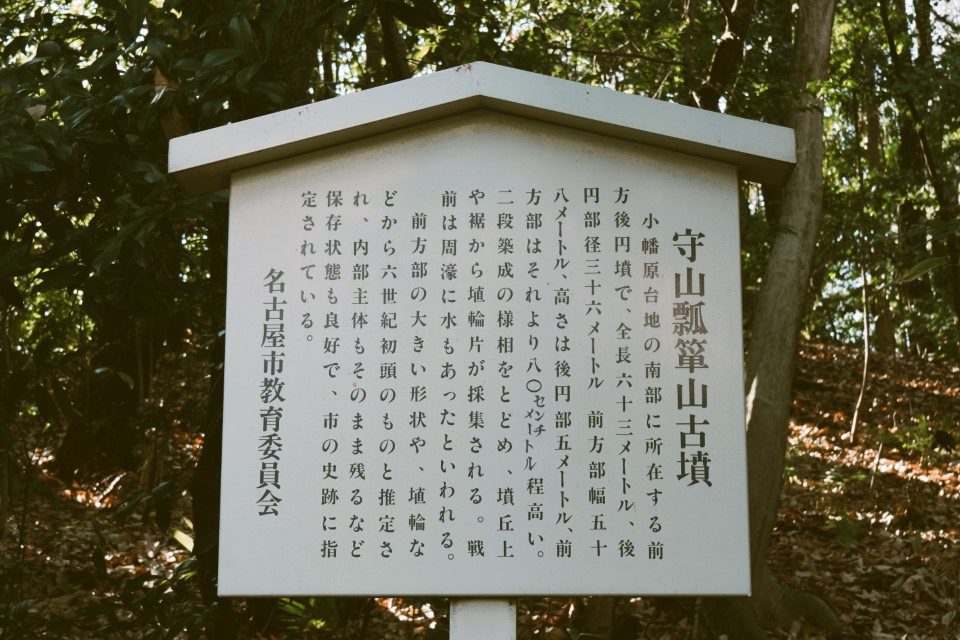 守山瓢箪山古墳
小幡原台地の南部に所在する前
方後円墳で、全長六十三メートル、後
円部径三十六メートル 前方部幅五十
八メートル、高さは後円部五メートル、前
方部はそれより八〇センチメートル程高い。
二段築成の様相をとどめ、墳丘上
や裾から埴輪片が採集される。戦
前は周濠に水もあったといわれる。
前方部の大きい形状や、埴輪な
どから六世紀初頭のものと推定さ
れ、内部主体もそのまま残るなど
保存状態も良好で、市の史跡に指
定されている。
名古屋市教育委員会